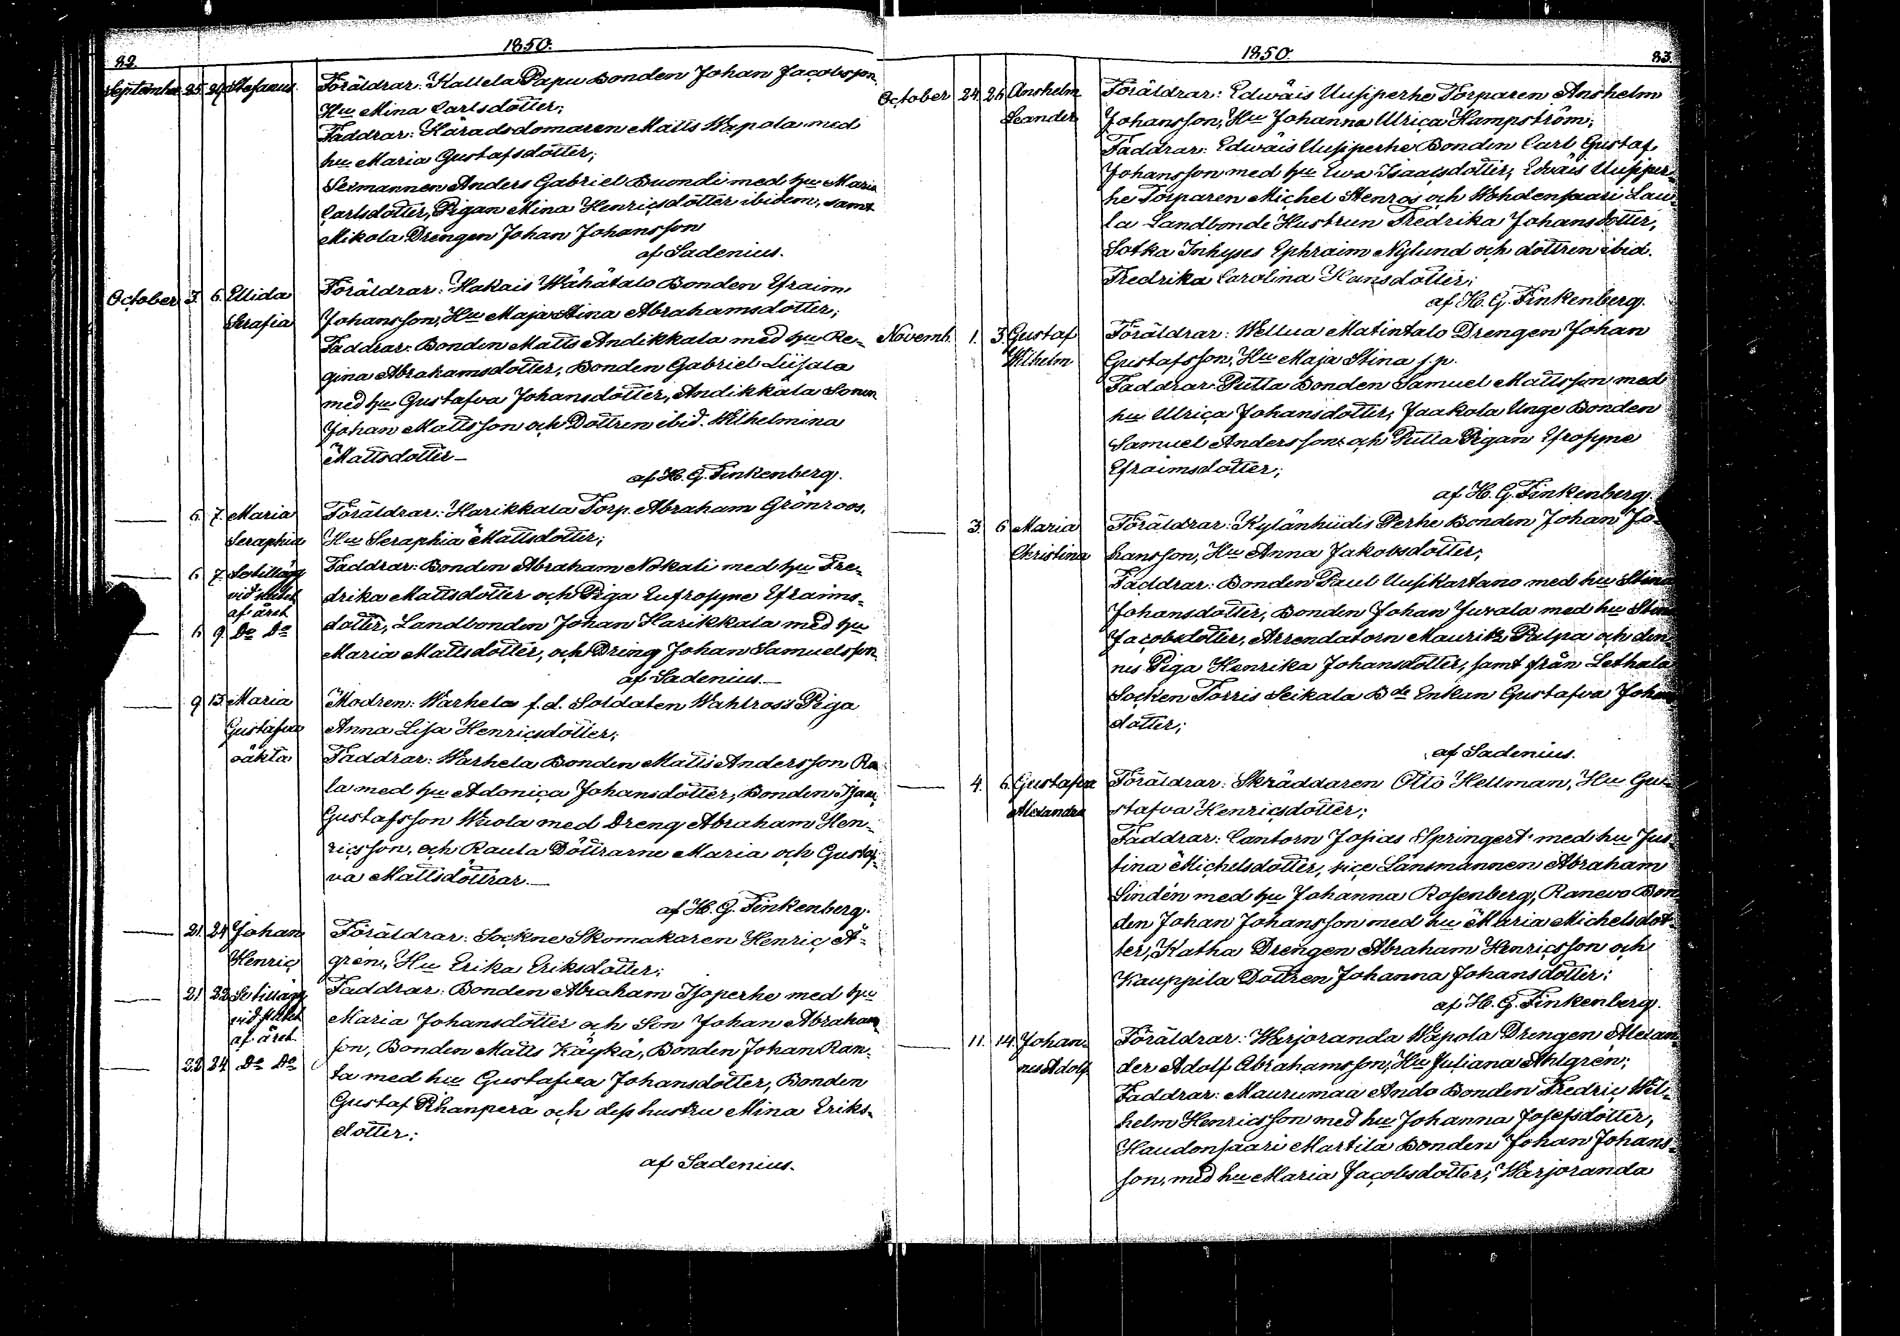 82.
1850.
September 25. 29. Stefanus. Föräldrar: Kallela Papu Bonden Johan Jacobsson,
Hu Mina Carlsdotter;
Faddrar: Häradsdomaren Matts Wapola med
hu Maria Gustafsdotter;
Sexmannen Anders Gabriel Buondi med hu Maria
Carlsdotter, Pigan Mina Henricsdotter ibidem, samt
Mikola Drengen Johan Johansson
af Sadenius.
October 3. 6. Ellida Föräldrar: Hakois Wähätalo Bonden Efraim
Serafia Johansson, Hu Maja Stina Abrahamsdotter;
Faddrar: Bonden Matts Andikkala med hu Re-
gina Abrahamsdotter, Bonden Gabriel Liisala
med hu Gustafva Johansdotter, Andikkala Sonen
Johan Mattsson och Dottren ibid. Wilhelmina
Mattsdotter —
af H. G. Finkenberg.
6. 7. Maria Föräldrar: Harikkala Torp. Abraham Grönroos,
Seraphia Hu Seraphia Mattsdotter;
6. 7. Se tillägg Faddrar: Bonden Abraham Nokali med hu Fre-
vid slutet drika Mattsdotter och Piga Eufrosyne Efraims-
af året
6. 9. Do Do dotter, Landbonden Johan Harikkala med hu
Maria Mattsdotter, och Dreng Johan Samuelsson.
af Sadenius. —
9. 13. Maria Modren: Warhela f.d. Soldaten Wahlross Piga
Gustafva Anna Lisa Henricsdotter;
oäkta Faddrar: Warhela Bonden Matts Andersson Ra
la med hu Adonica Johansdotter, Bonden Isaac
Gustafsson Wuola med Dreng Abraham Hen-
ricsson, och Raula Döttrarne Maria och Gustaf-
va Mattsdöttrar. —
af H. G. Finkenberg.
21. 24. Johan Föräldrar: Sockne Skomakaren Henric Å-
Henric gren, Hu Erika Eriksdotter;
21. 22. Se tillägg Faddrar: Bonden Abraham Isoperhe med hu
vid slutet Maria Johansdotter och Son Johan Abraham
af året son, Bonden Matts Käykä, Bonden Johan Ran-
22. 24. Do Do ta med hu Gustafva Johansdotter, Bonden
Gustaf Rihanpera och dess hustru Mina Eriks-
dotter;
af Sadenius.
1850.
83.
October 24. 26. Anshelm Föräldrar: Edwäis Uusiperhe Torparen Anshelm
Leander Johansson, Hu Johanna Ulrica Hampström;
Faddrar: Edwäis Uusiperhe Bonden Carl Gustaf
Johansson med hu Ewa Isaacsdotter, Edwäis Uusiper-
he Torparen Michel Stenros och Wohdensaari Lau-
la Landbonde Hustrun Fredrika Johansdotter,
Sotka Inhyses Ephraim Nylund och dottren ibid.
Fredrika Carolina Hansdotter;
af H. G. Finkenberg.
Novemb. 1. 3. Gustaf Föräldrar: Wellua Matintalo Drengen Johan
Wilhelm Gustafsson, Hu Maja Stina s.p.
Faddrar: Putta Bonden Samuel Mattsson med
hu Ulrica Johansdotter, Jaakola Unge Bonden
Samuel Andersson och Putta Pigan Efrosyne
Efraimsdotter;
af H. G. Finkenberg.
3. 6. Maria Föräldrar: Kylänhiidis Perhe Bonden Johan Jo-
Christina hansson, Hu Anna Jakobsdotter;
Faddrar: Bonden Paul Uusikartano med hu Stina
Johansdotter, Bonden Johan Juvala med hu Stina
Jacobsdotter, Arrendatorn Maurits Pulpa och den-
nes Piga Henrika Johansdotter, samt från Lethala
Socken Torris Seikala Bde Enkun Gustafva Johans
dotter;
af Sadenius.
4. 6. Gustafva Föräldrar: Skräddaren Otto Hellman, Hu Gus-
Alexandra tafva Henricsdotter;
Faddrar: Cantorn Josias Springert med hu Jus-
tina Michelsdotter, vice Länsmannen Abraham
Lindén med hu Johanna Rosenberg, Ranevo Bon-
den Johan Johansson med hu Maria Michelsdot-
ter, Katha Drengen Abraham Henricsson och
Kauppila Dottren Johanna Johansdotter;
af H. G. Finkenberg.
11. 14. Johan- Föräldrar: Warjoranda Wapola Drengen Alexan-
nes Adolf der Adolf Abrahamsson, Hu Juliana Ahlgrén;
Faddrar: Maurumaa Ando Bonden Fredric Wil-
helm Henricsson med hu Johanna Josefsdotter,
Haudonsaari Martila Bonden Johan Johans-
son, med hu Maria Jacobsdotter; Warjoranda